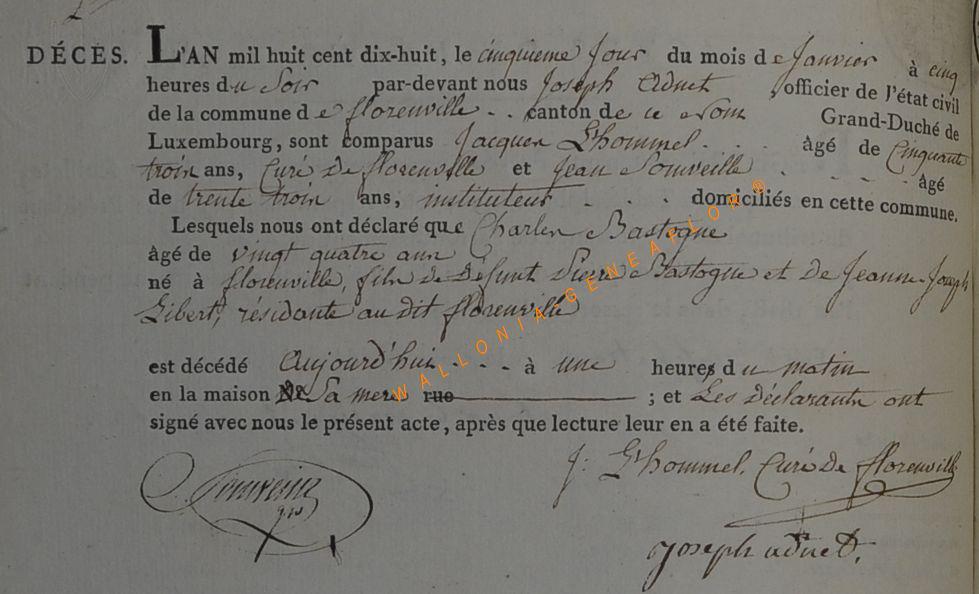 DÉCÈS. L'AN mil huit cent dix-huit, le cinquieme jour du mois de Janvier à cinq
heures du Soir par-devant nous Joseph Adnet, officier de l'état civil
de la commune de florenville . . canton de ce Nom Grand-Duché de
Luxembourg, sont comparus Jacques L'hommel . . . . âgé de Cinquante
trois ans, Curé de florenville et Jean . . . . âgé
de trente trois ans, instituteur . . . domiciliés en cette commune.
Lesquels nous ont déclaré que Charles Bastogne
âgé de vingt quatre ans
né à florenville, fils de Défunt Pierre Bastogne et de Jeanne-Joseph
Gibert, résidante au dit florenville
est décédé aujourd'hui . . . . à une heures du matin
en la maison De Sa mere rue ; et Les Déclarants ont
signé avec nous le présent acte, après que lecture leur en a été faite.
J: L'hommel, Curé de florenville
Joseph adnet.
WALLONIA-GENEAFLOR®